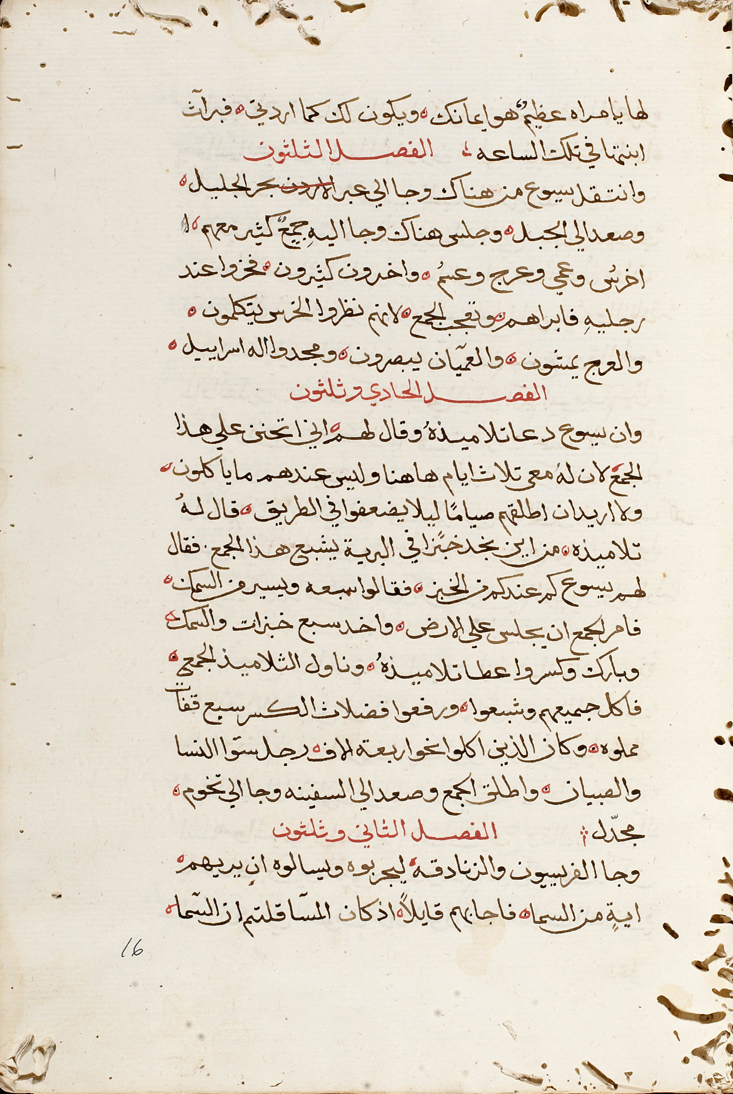 لها يا امراه عظيمٌ هو ايمانك ويكون لك كما اردتي فبرأت
ابنتها في تلك الساعه الفصل الثلثون
وانتقل يسوع من هناك وجا الي عبر الاردن بحر الجليل
وصعد الي الجبل وجلس هناك وجا اليهِ جمعٌ كثير معهم
اخرسٌ وعمي وعرج وعسمٌ واخرون كثيرون فخروا عند
رجليهِ فابراهم وتعجب الجمع لانهم نظروا الخرس يتكلمون
والعرج يمشون والعميان يبصرون ومجدوا اله اسراييل
الفصل الحادي وثلثون
وان يسوع دعا تلاميذهُ وقال لهم اني اتحنن علي هذا
الجمع لان لهُ معي تلاث ايام هاهنا وليس عندهم ما ياكلون
ولا اريد ان اطلقهم صيامًا ليلا يضعفوا في الطريق قال لهُ
تلاميذه من اين نجد خبزا في البرية يشبع هذا الجمع فقال
لهم يسوع كم عندكم من الخبز فقالوا سبعه ويسير من السمك
فامر الجمع ان يجلس علي الارض واخد سبع خبزات والسمك
وبارك وكسر واعطا تلاميذهُ وناول التلاميذ الجمع
فاكل جميعهم وشبعوا ورفعوا فضلات الكسر سبع قفات
مملوه وكان الذين اكلوا نحو اربعة الاف رجل سوا النسا
والصبيان واطلق الجمع وصعد الي السفينه وجا الي تخوم
مجدل الفصل الثاني وثلثون
وجا الفريسيون والزنادقة ليجربوه ويسالوه ان يريهم
ايةٍ من السما فاجابهم قايلاً اذ كان المسا قلتم ان السما
16